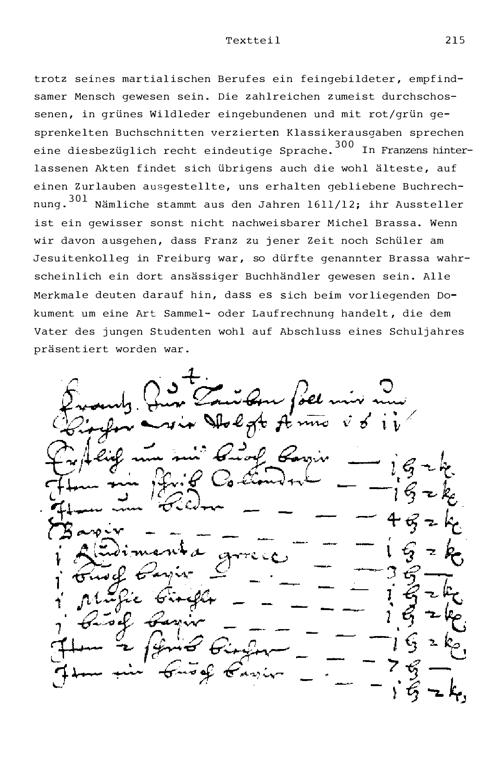 Textteil 215
trotz seines martialischen Berufes ein feingebildeter, empfind-
samer Mensch gewesen sein. Die zahlreichen zumeist durchschos-
senen, in grünes Wildleder eingebundenen und mit rot/grün ge-
sprenkelten Buchschnitten verzierten Klassikerausgaben sprechen
eine diesbezüglich recht eindeutige Sprache.300 In Franzens hinter-
lassenen Akten findet sich übrigens auch die wohl älteste, auf
einen Zurlauben ausgestellte, uns erhalten gebliebene Buchrech-
nung.301 Nämliche stammt aus den Jahren 1611/12; ihr Aussteller
ist ein gewisser sonst nicht nachweisbarer Michel Brassa. Wenn
wir davon ausgehen, dass Franz zu jener Zeit noch Schüler am
Jesuitenkolleg in Freiburg war, so dürfte genannter Brassa wahr-
scheinlich ein dort ansässiger Buchhändler gewesen sein. Alle
Merkmale deuten darauf hin, dass es sich beim vorliegenden Do-
kument um eine Art Sammel- oder Laufrechnung handelt, die dem
Vater des jungen Studenten wohl auf Abschluss eines Schuljahres
präsentiert worden war.
Frantz Zur Lauben soll mir um
biecher wie Volgt Anno 1611
Erstlich um ein buoch bapir — 1 2
Item ein schrib — — 1 2
Item um bilder — — 4 2
Bapir — — — — 1 2
1 Rudimenta grece — — 3
1 buoch bapir — — — — 1 2
1 Music biechle — — — — 1 2
1 buoch bapir — — — — 1 2
Item 2 schrib biecher — — — 7
Item ein buoch bapir — — — 1 2